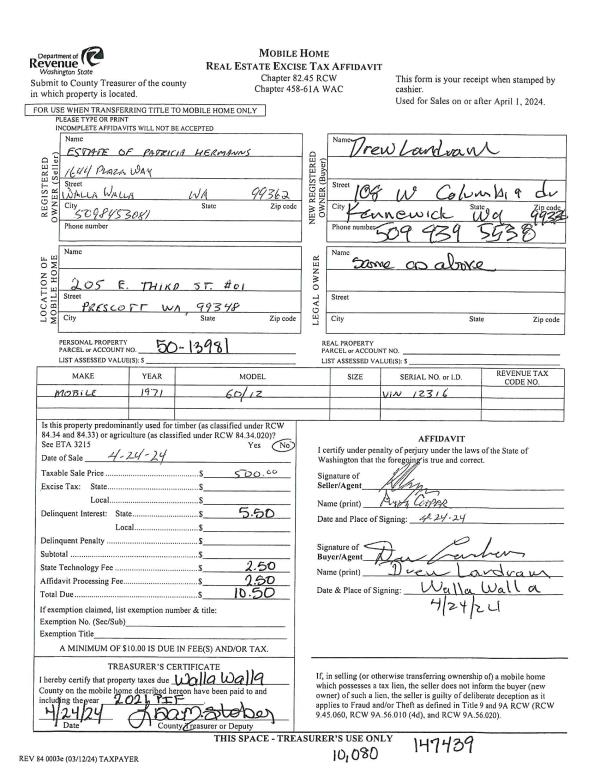 Department of
Revenue
Washington State
Submit to County Treasurer of the county
in which property is located.
MOBILE HOME
REAL ESTATE EXCISE TAX AFFIDAVIT
Chapter 82.45 RCW
Chapter 458-61A WAC
This form is your receipt when stamped by
cashier.
Used for Sales on or after April 1, 2024.
FOR USE WHEN TRANSFERRING TITLE TO MOBILE HOME ONLY
PLEASE TYPE OR PRINT
INCOMPLETE AFFIDAVITS WILL NOT BE ACCEPTED
REGISTERED
OWNER (Seller)
Name
ESTATE OF PATRICIA HERMANNS
1644 PLAZA WAY
Street
WALLA WALLA WA 99362
City State Zip code
5098453081
Phone number
NEW REGISTERED
OWNER (Buyer)
Name
Drew Landram
Street
108 W Columbia dr
City State Zip code
Kennewick Wa
Phone number
509 939 5538
LOCATION OF
MOBILE HOME
Name
205 E. THIRD ST. #01
Street
PRESCOTT WA, 99348
City State Zip code
LEGAL OWNER
Name
same as above
Street
City State Zip code
PERSONAL PROPERTY
PARCEL or ACCOUNT NO. 50-13981
LIST ASSESSED VALUE(S): $
REAL PROPERTY
PARCEL or ACCOUNT NO.
LIST ASSESSED VALUE(S): $
MAKE YEAR MODEL SIZE SERIAL NO. or I.D. REVENUE TAX
CODE NO.
MOBILE 1971 60/12 VIN 12316
Is this property predominantly used for timber (as classified under RCW
84.34 and 84.33) or agriculture (as classified under RCW 84.34.020)?
See ETA 3215 Yes No
Date of Sale 4-24-24
Taxable Sale Price $ 500.00
Excise Tax: State $
Local $
Delinquent Interest: State $ 5.50
Local $
Delinquent Penalty $
Subtotal $
State Technology Fee $ 2.50
Affidavit Processing Fee $ 2.50
Total Due $ 10.50
If exemption claimed, list exemption number & title:
Exemption No. (Sec/Sub)
Exemption Title
A MINIMUM OF $10.00 IS DUE IN FEE(S) AND/OR TAX.
AFFIDAVIT
I certify under penalty of perjury under the laws of the State of
Washington that the foregoing is true and correct.
Signature of
Seller/Agent
Name (print)
Date and Place of Signing: 4-24-24
Signature of
Buyer/Agent
Name (print) Drew Landram
Date & Place of Signing: Walla Walla
4/24/24
TREASURER'S CERTIFICATE
I hereby certify that property taxes due Walla Walla
County on the mobile home described hereon have been paid to and
including the year 2024 PIF
4/24/24
Date County Treasurer or Deputy
If, in selling (or otherwise transferring ownership of) a mobile home
which possesses a tax lien, the seller does not inform the buyer (new
owner) of such a lien, the seller is guilty of deliberate deception as it
applies to Fraud and/or Theft as defined in Title 9 and 9A RCW (RCW
9.45.060, RCW 9A.56.010 (4d), and RCW 9A.56.020).
THIS SPACE - TREASURER'S USE ONLY
10,080 147439
REV 84 0003e (03/12/24) TAXPAYER